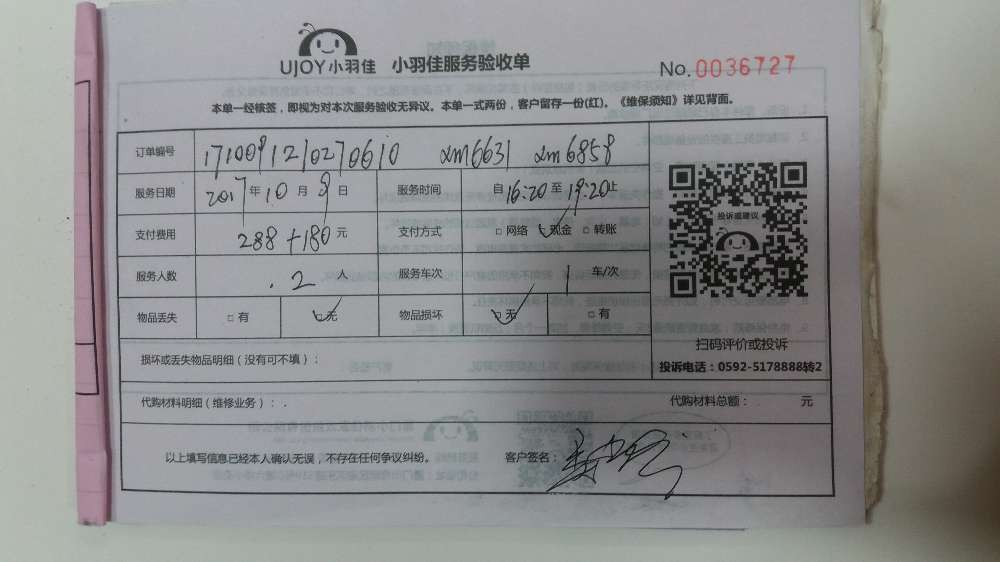 UJOY小羽佳 小羽佳服务验收单 No.0036727
本单一经核签，即视为对本次服务验收无异议。本单一式两份，客户留存一份(红)。《维保须知》详见背面。
订单编号 1710091210270610 xm6631 xm6858
服务日期 2017年10月9日 服务时间 自16:20至19:20止
支付费用 288+180元 支付方式 □网络 ☑现金 □转账
服务人数 2人 服务车次 1车/次
物品丢失 □有 ☑无 物品损坏 ☑无 □有
投诉或建议
扫码评价或投诉
投诉电话：0592-5178888转2
损坏或丢失物品明细（没有可不填）：
代购材料明细（维修业务）： 代购材料总额： 元
以上填写信息已经本人确认无误，不存在任何争议纠纷。 客户签名：